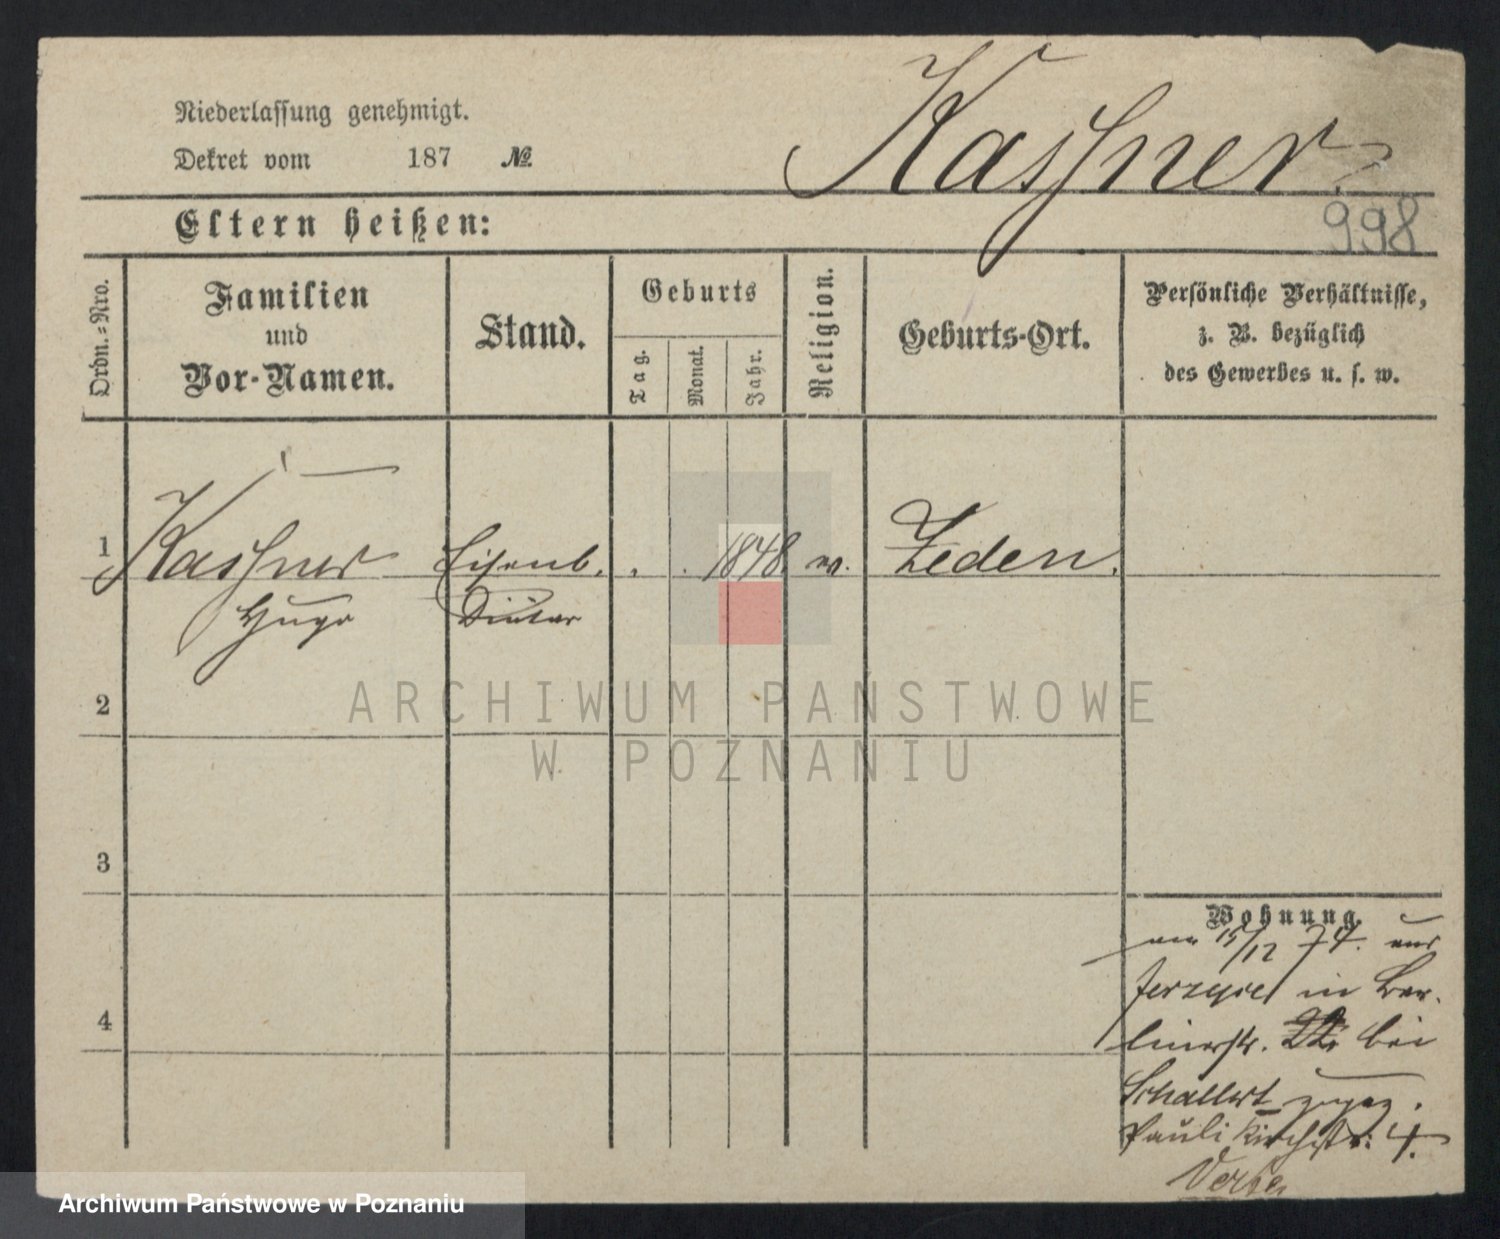 Niederlassung genehmigt.
Dekret vom 187 №
Kassner
998
Eltern heißen:
Ordn.=Nro.
Familien
und
Vor-Namen.
Stand.
Geburts
Tag.
Monat.
Jahr.
Religion.
Geburts-Ort.
Persönliche Verhältnisse,
z. B. bezüglich
des Gewerbes u. s. w.
1 Kassner Eisenb. 1848 Zeden.
Hugo Diätar
2
3
4
Wohnung.
am 15/12 74. aus
in Ber-
linerstr. bei
Schallert zugez.
Paulikirchstr: 4.
ARCHIWUM PAŃSTWOWE
W POZNANIU
Archiwum Państwowe w Poznaniu